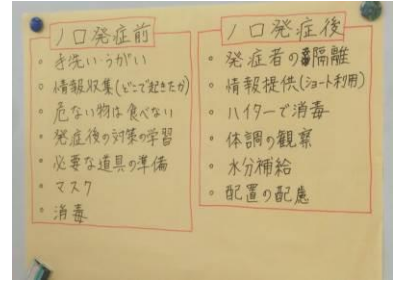 ノロ発症前
・手洗い・うがい
・情報収集(どこで起きたか)
・危ない物は食べない
・発症後の対策の学習
・必要な道具の準備
・マスク
・消毒
ノロ発症後
・発症者の隔離
・情報提供(ショート利用)
・ハイターで消毒
・体調の観察
・水分補給
・配置の配慮